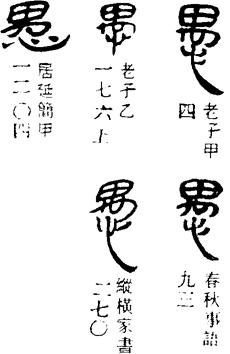 愚
老子甲
四
愚
老子乙
一七六上
愚
居延簡甲
一二〇四
愚
春秋事語
九三
愚
縱橫家書
二七〇